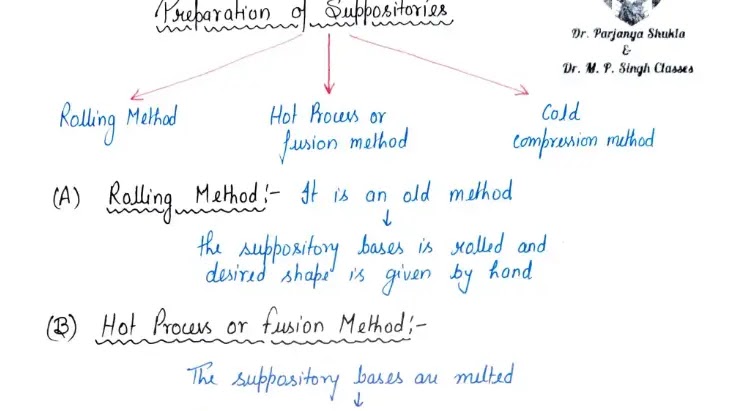 Preparation of Suppositories
Dr. Parjanya Shukla
&
Dr. M. P. Singh Classes
Rolling Method
Hot Process or
fusion method
Cold
compression method
(A) Rolling Method:- It is an old method
the suppository bases is rolled and
desired shape is given by hand
(B) Hot Process or fusion Method:-
The suppository bases are melted